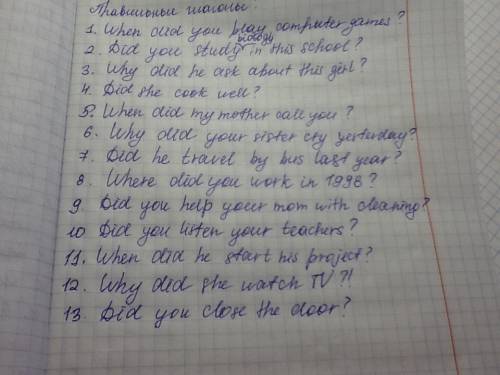 Правильные глаголы:
1. When did you play computer games?
2. Did you study biology in this school?
3. Why did he ask about this girl?
4. Did she cook well?
5. When did my mother call you?
6. Why did your sister cry yesterday?
7. Did he travel by bus last year?
8. Where did you work in 1998?
9. Did you help your mom with cleaning?
10 Did you listen your teachers?
11. When did he start his project?
12. Why did she watch TV?!
13. Did you close the door?